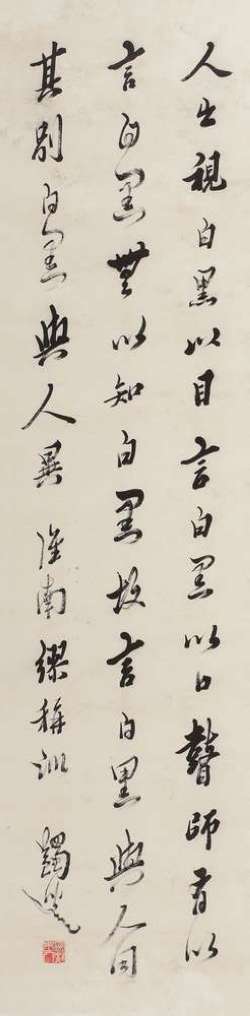 人之視白黑以目言白黑以口瞽師有以
言白黑無以知白黑故言白黑與人同
其別白黑與人異 淮南繆稱訓 蠲叟